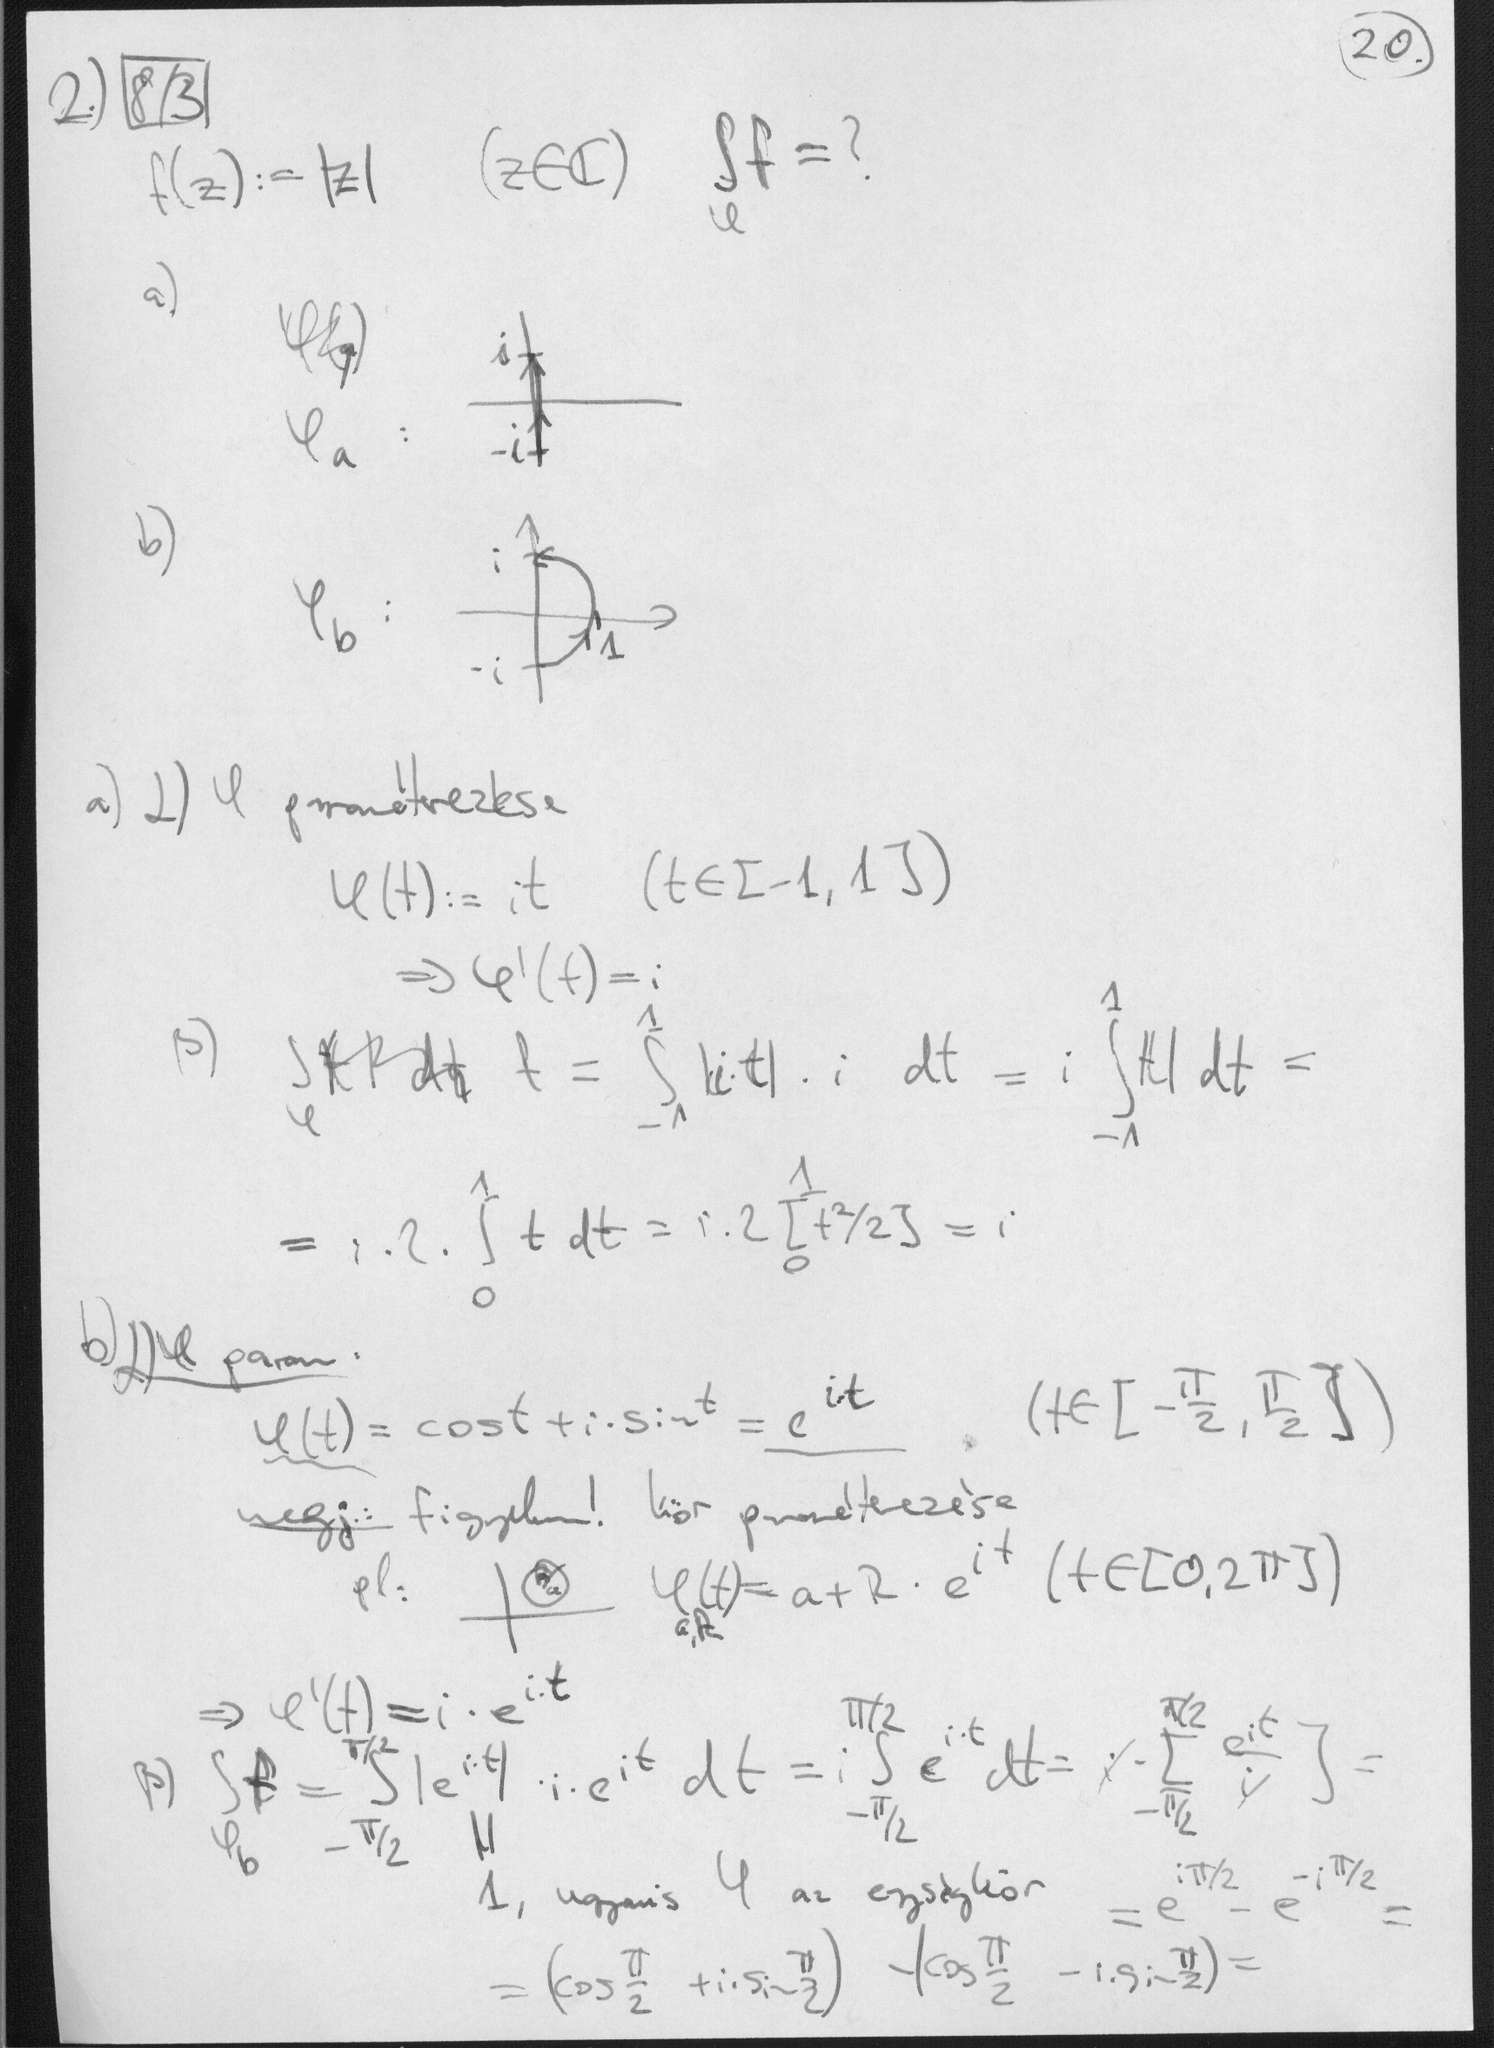 20.
2.) 8/3
f(z) := |z| (z∈ℂ) ∫φ f = ?
a)
φa :
i
-i
b)
φb :
i
1
-i
a) α) φ paraméterezése
φ(t) := it (t∈[-1, 1])
⇒ φ'(t) = i
β) ∫φ f = ∫₋₁¹ |i·t| · i dt = i ∫₋₁¹ |t| dt =
= i · 2 · ∫₀¹ t dt = i · 2 [t²/2]₀¹ = i
b) α) φ param.
φ(t) = cos t + i·sin t = e^{i·t} (t∈[-π/2, π/2])
megj.: figyelem! kör paraméterezése
pl: φ_{a,R}(t) = a + R · e^{it} (t∈[0, 2π])
⇒ φ'(t) = i · e^{i·t}
β) ∫φb f = ∫_{-π/2}^{π/2} |e^{i·t}| · i · e^{it} dt = i ∫_{-π/2}^{π/2} e^{i·t} dt = i · [e^{it}/i]_{-π/2}^{π/2} =
1, ugyanis φ az egységkör = e^{iπ/2} - e^{-iπ/2} =
= (cos π/2 + i·sin π/2) - (cos π/2 - i·sin π/2) =